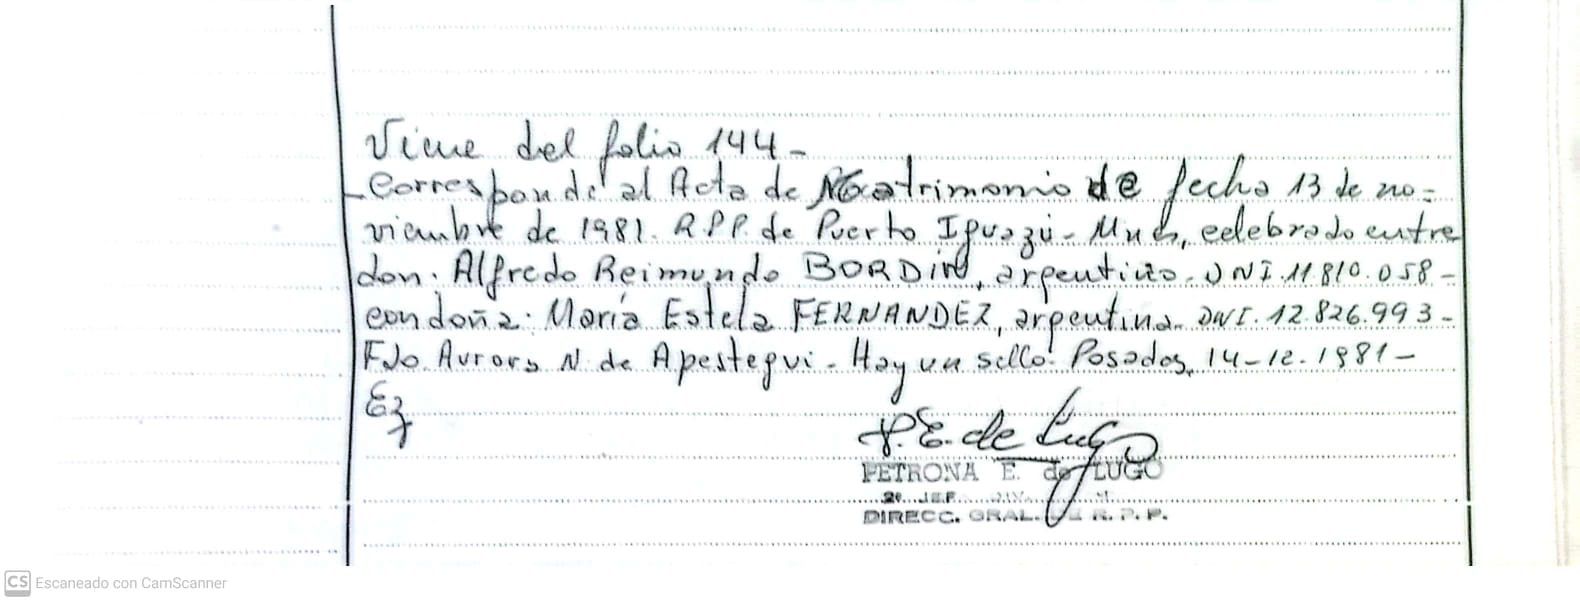 Viene del folio 144-
-Corresponde al Acta de Matrimonio de fecha 13 de no=
viembre de 1981. R.P.P. de Puerto Iguazú- Mnes, celebrado entre
don: Alfredo Reimundo BORDIN, argentino- DNI.11.810.058-
con doña: María Estela FERNANDEZ, argentina- DNI.12.826.993-
Fdo. Aurora N. de Apestegui- Hay un sello: Posadas, 14-12-1981-
P.E. de Lugo
PETRONA E. de LUGO
2º JEF
DIRECC. GRAL. DE R. P. P.
CS Escaneado con CamScanner